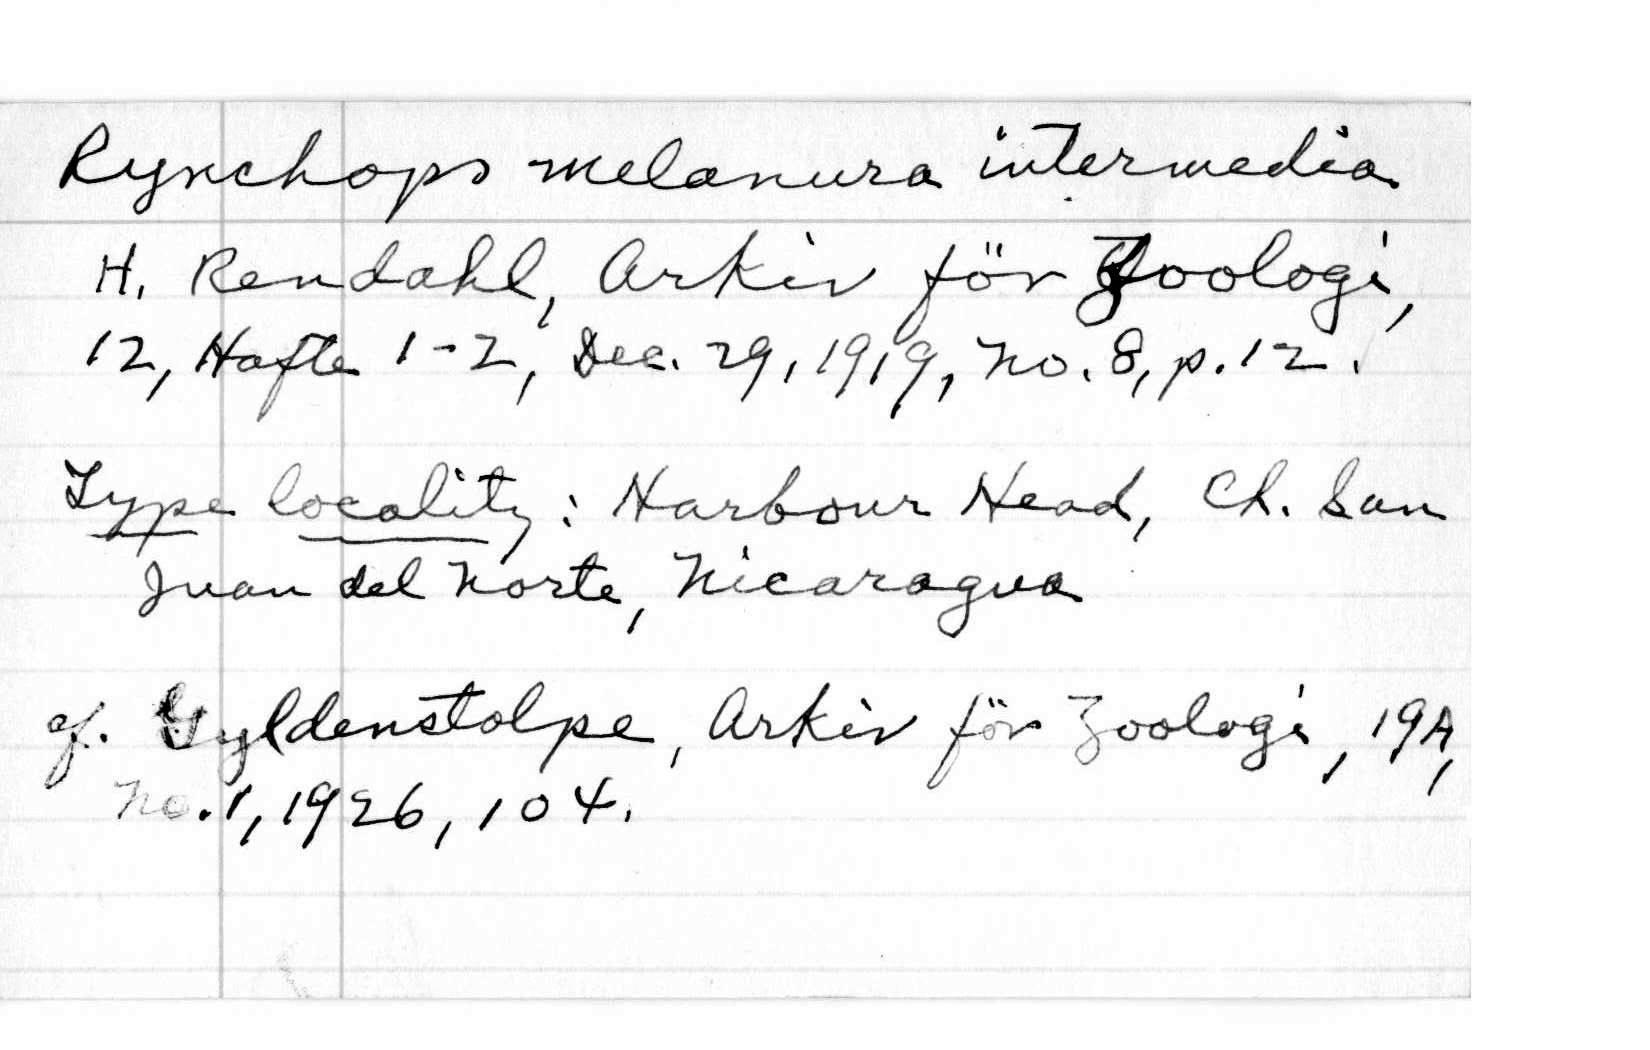 Rynchops melanura intermedia
H. Rendahl, Arkiv för Zoologi,
12, Hafte 1-2, Dec. 29, 1919, No. 8, p. 12.
Type locality: Harbour Head, Ch. San
Juan del Norte, Nicaragua
cf. Gyldenstolpe, Arkiv för Zoologi, 19A,
No. 1, 1926, 104.